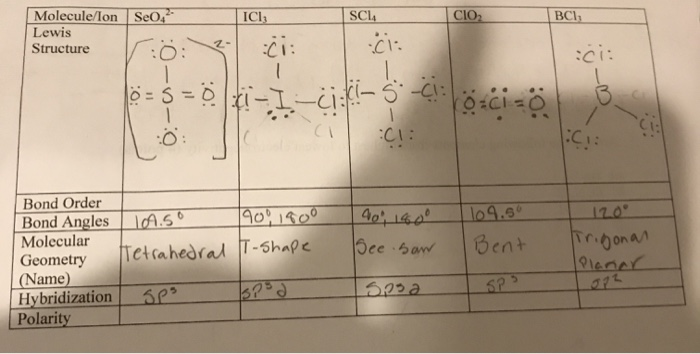 Molecule/Ion SeO₄²⁻ ICl₃ SCl₄ ClO₂ BCl₃
Lewis
Structure
:Ö: 2- :Cl: :Cl: :Cl:
Ö=S=Ö :Cl-I-Cl: :Cl-S-Cl: Ö=Cl=Ö B
:Ö: Cl :Cl: :Cl: Cl:
Bond Order
Bond Angles 109.5° 90°, 180° 90°, 180° 109.5° 120°
Molecular Tetrahedral T-Shape See-saw Bent Trigonal
Geometry Planar
(Name)
Hybridization sp³ sp³d sp³d sp³ sp²
Polarity